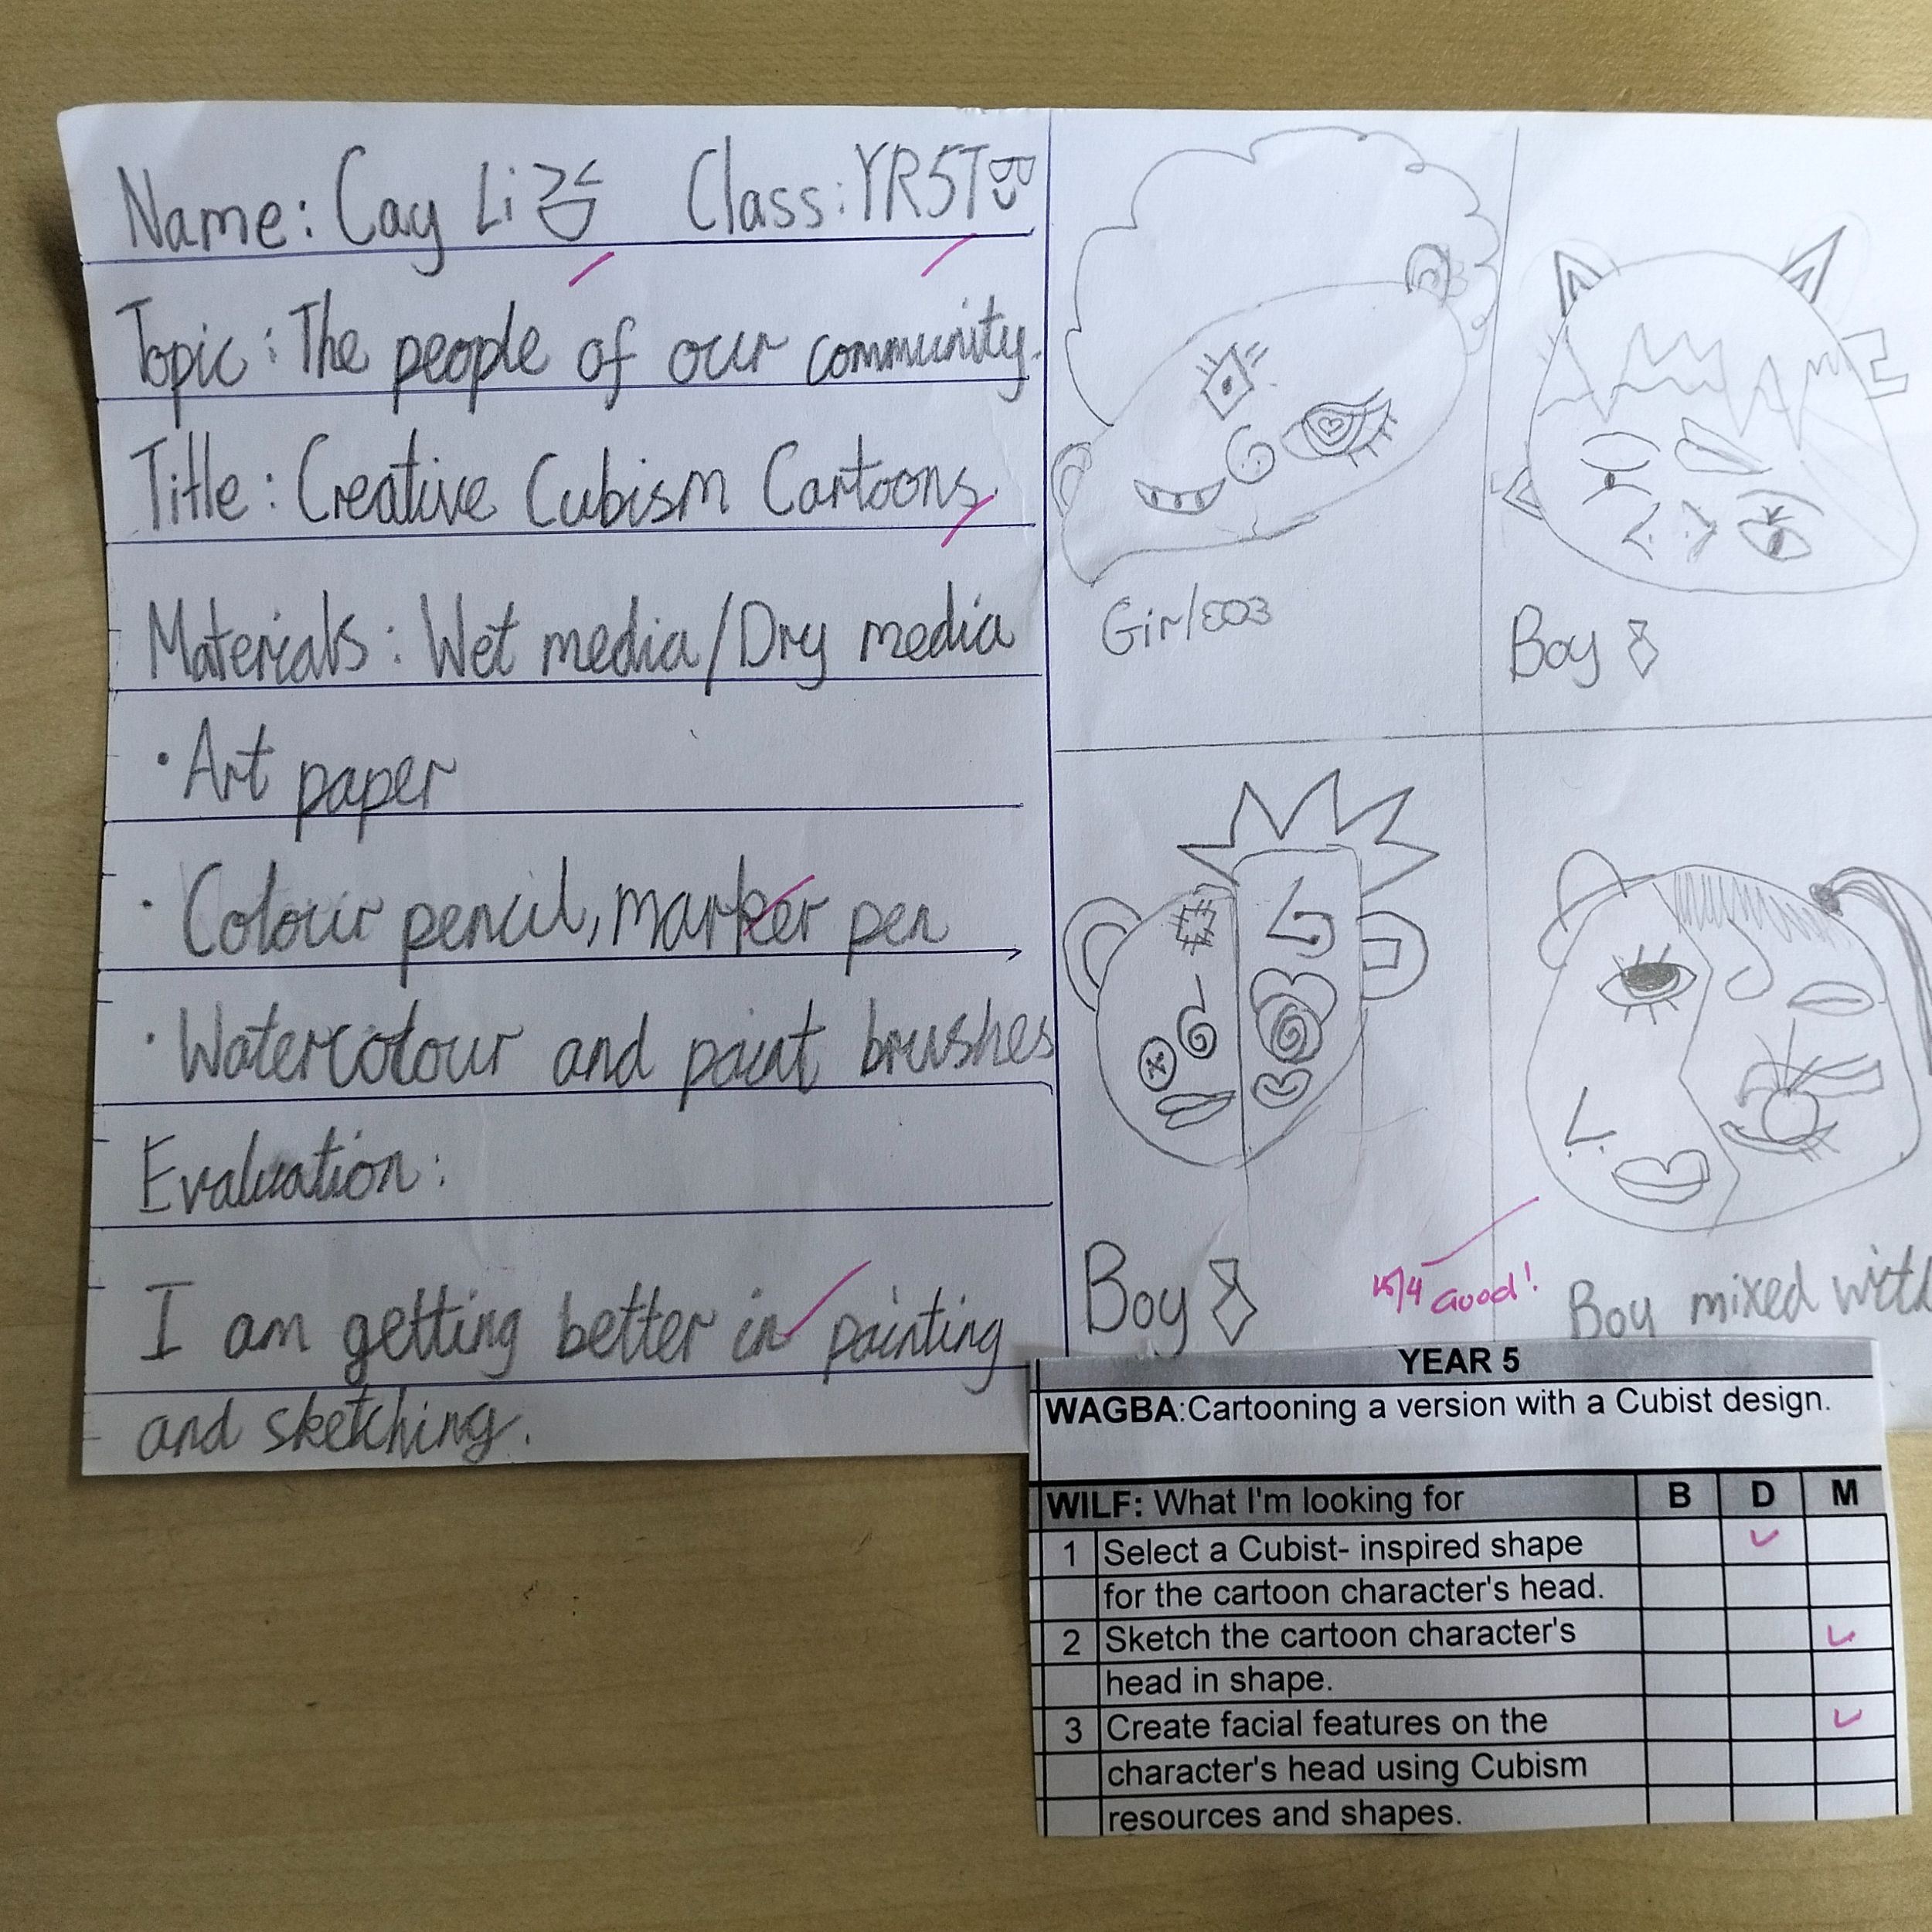 Name: Cay Li Class: YR5T
Topic: The people of our community.
Title: Creative Cubism Cartoons
Materials: Wet media/Dry media
• Art paper
• Colour pencil, marker pen
• Watercolour and paint brushes
Evaluation:
I am getting better in painting
and sketching.
Girl
Boy
Boy
Good!
Boy mixed with
YEAR 5
WAGBA:Cartooning a version with a Cubist design.
WILF: What I'm looking for B D M
1 Select a Cubist- inspired shape
for the cartoon character's head.
2 Sketch the cartoon character's
head in shape.
3 Create facial features on the
character's head using Cubism
resources and shapes.